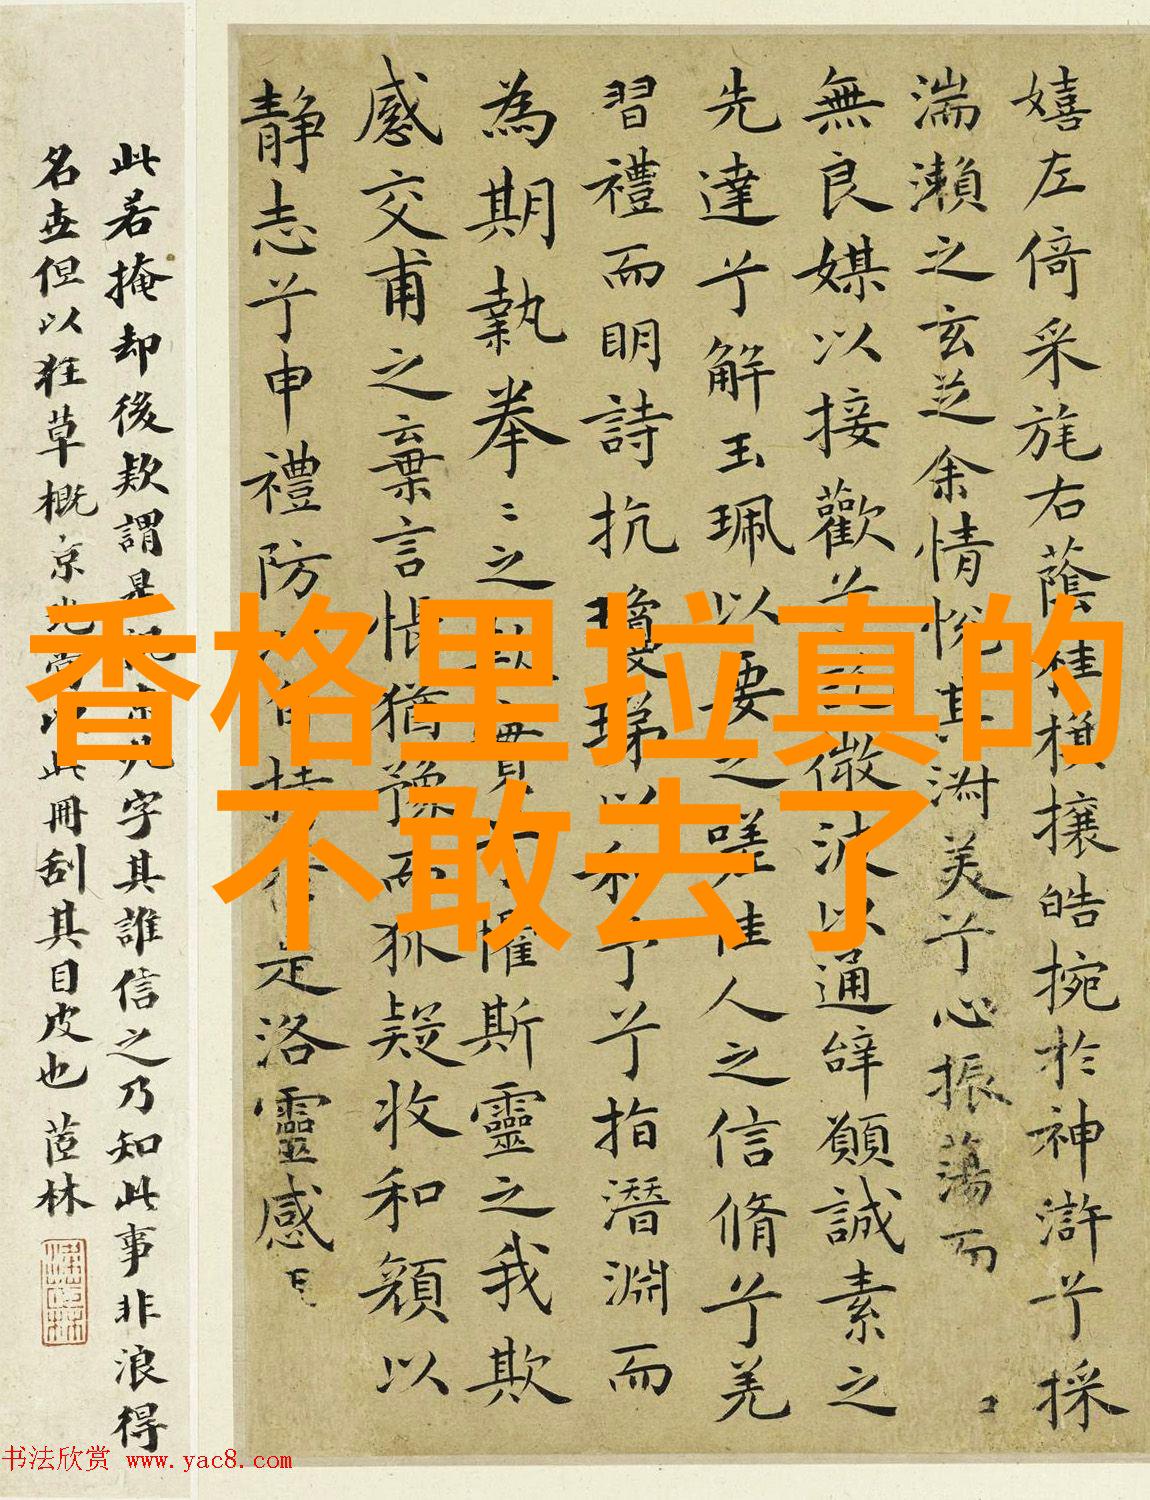 嬉左倚采旄右蔭桂旗攘皓捥於神滸兮採
湍瀨之玄芝余情悅其淑美兮心振蕩而
無良媒以接歡兮微波以通辭願誠素之
先達兮解玉珮以要之嗟佳人之信脩兮羌
習禮而明詩抗瓊珶以和予兮指潛淵而
為期執拳〻之懼斯靈之我欺
感交甫之棄言悵猶豫而狐疑收和顏以
靜志兮申禮防以自持於是洛靈感
此若掩却後欵謂是字其誰信之乃知此事非浪得
名世但以狂草概此冊刮其目皮也 茝林
香格里拉真的
不敢去了
书法欣赏 www.yac8.com